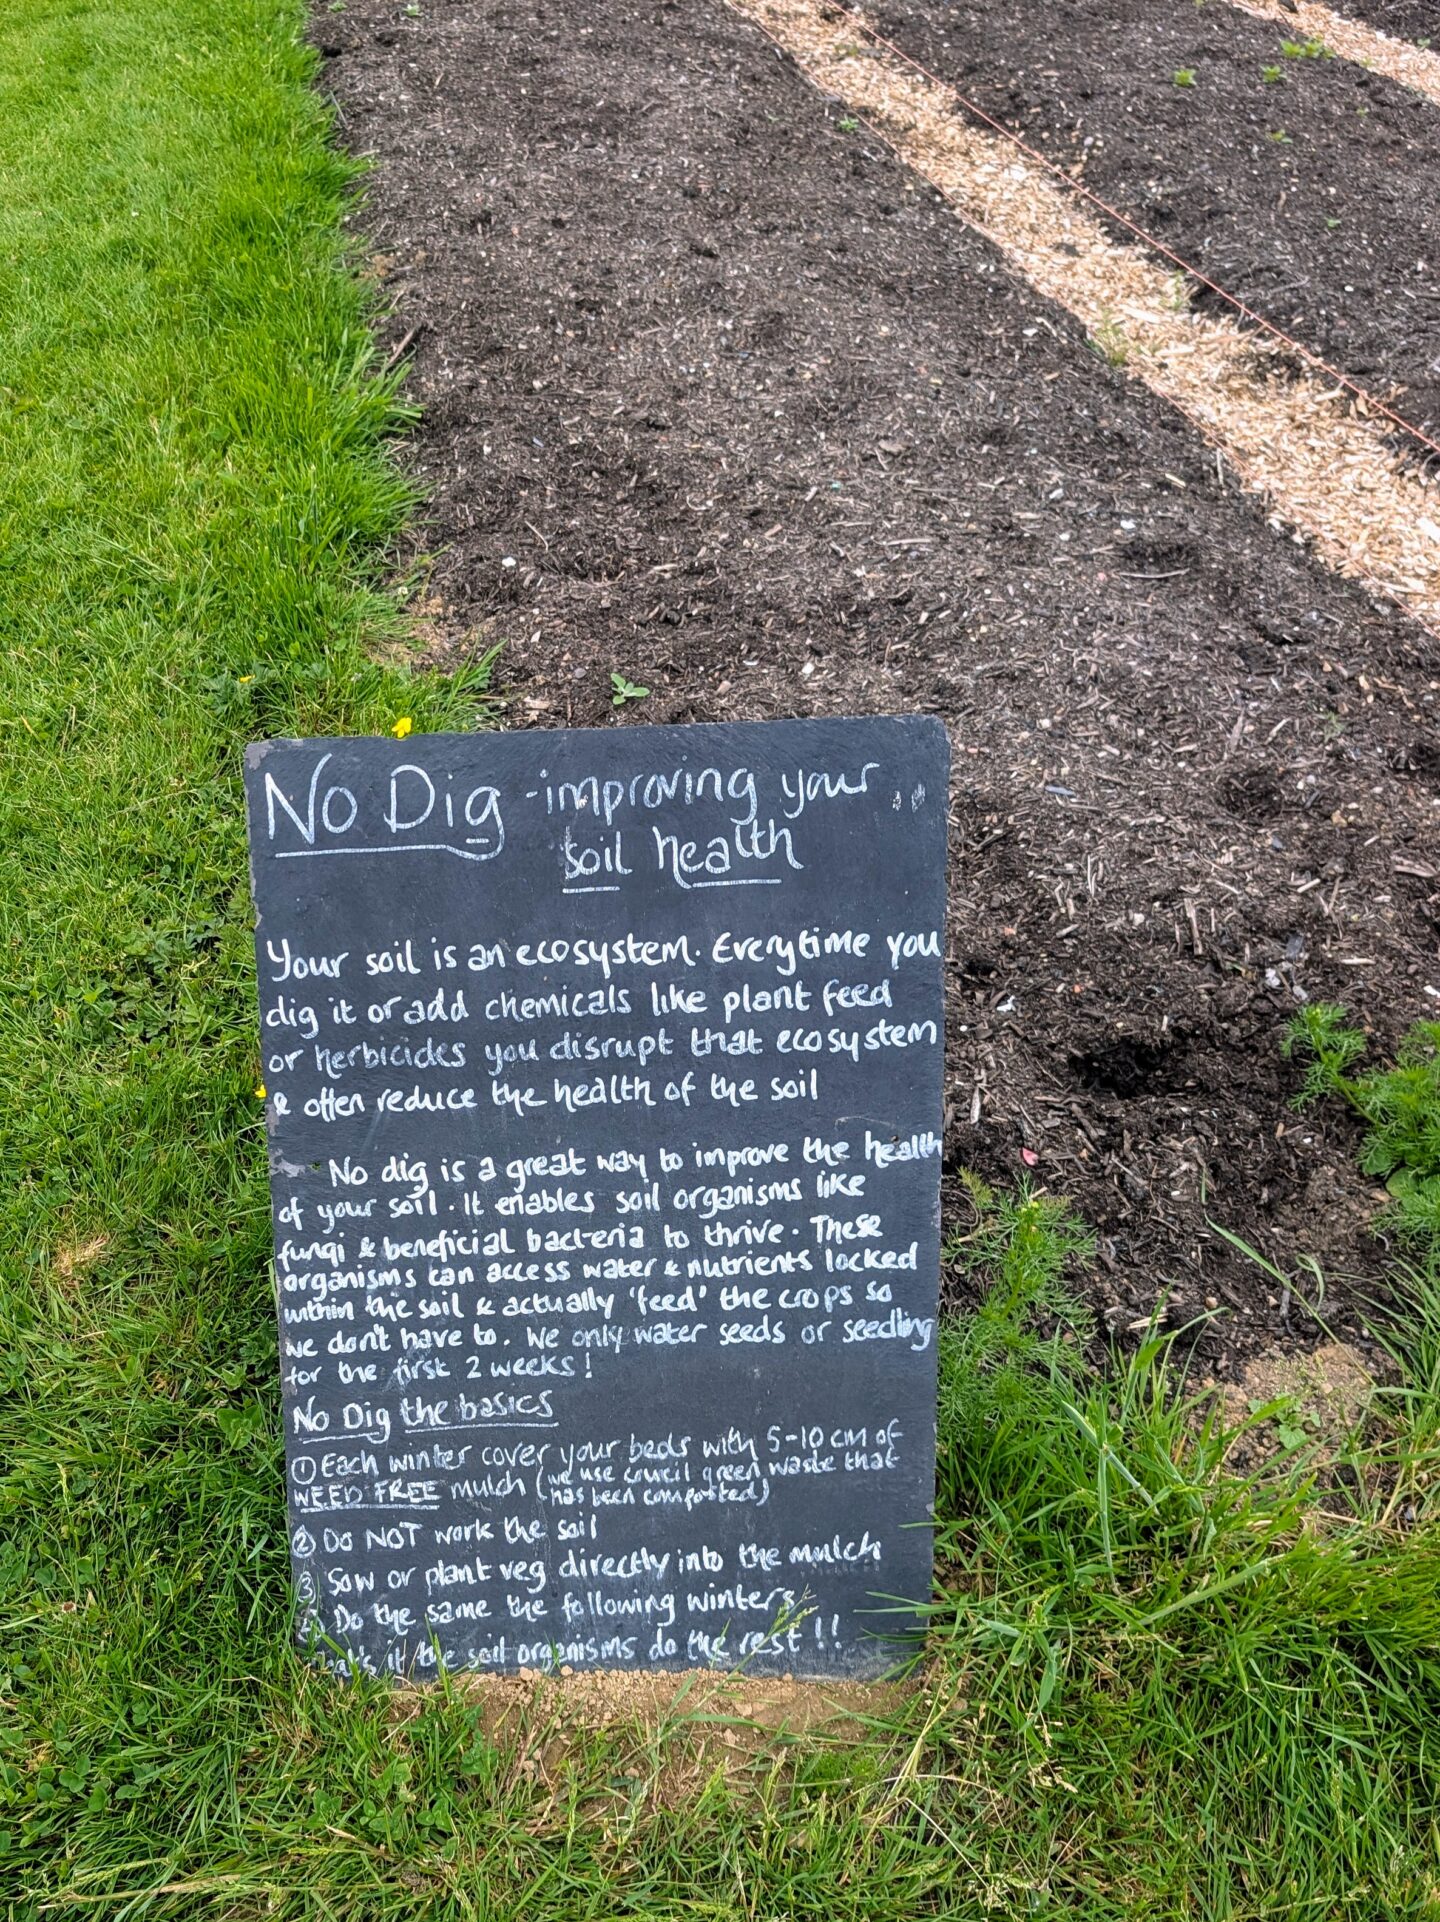 No Dig - improving your
soil health
Your soil is an ecosystem. Everytime you
dig it or add chemicals like plant feed
or herbicides you disrupt that ecosystem
& often reduce the health of the soil
No dig is a great way to improve the health
of your soil. It enables soil organisms like
fungi & beneficial bacteria to thrive. These
organisms can access water & nutrients locked
within the soil & actually 'feed' the crops so
we don't have to. We only water seeds or seedling
for the first 2 weeks!
No Dig the basics
① Each winter cover your beds with 5-10 cm of
WEED FREE mulch (we use council green waste that
has been composted)
② Do NOT work the soil
③ Sow or plant veg directly into the mulch
④ Do the same the following winters
That's it the soil organisms do the rest!!